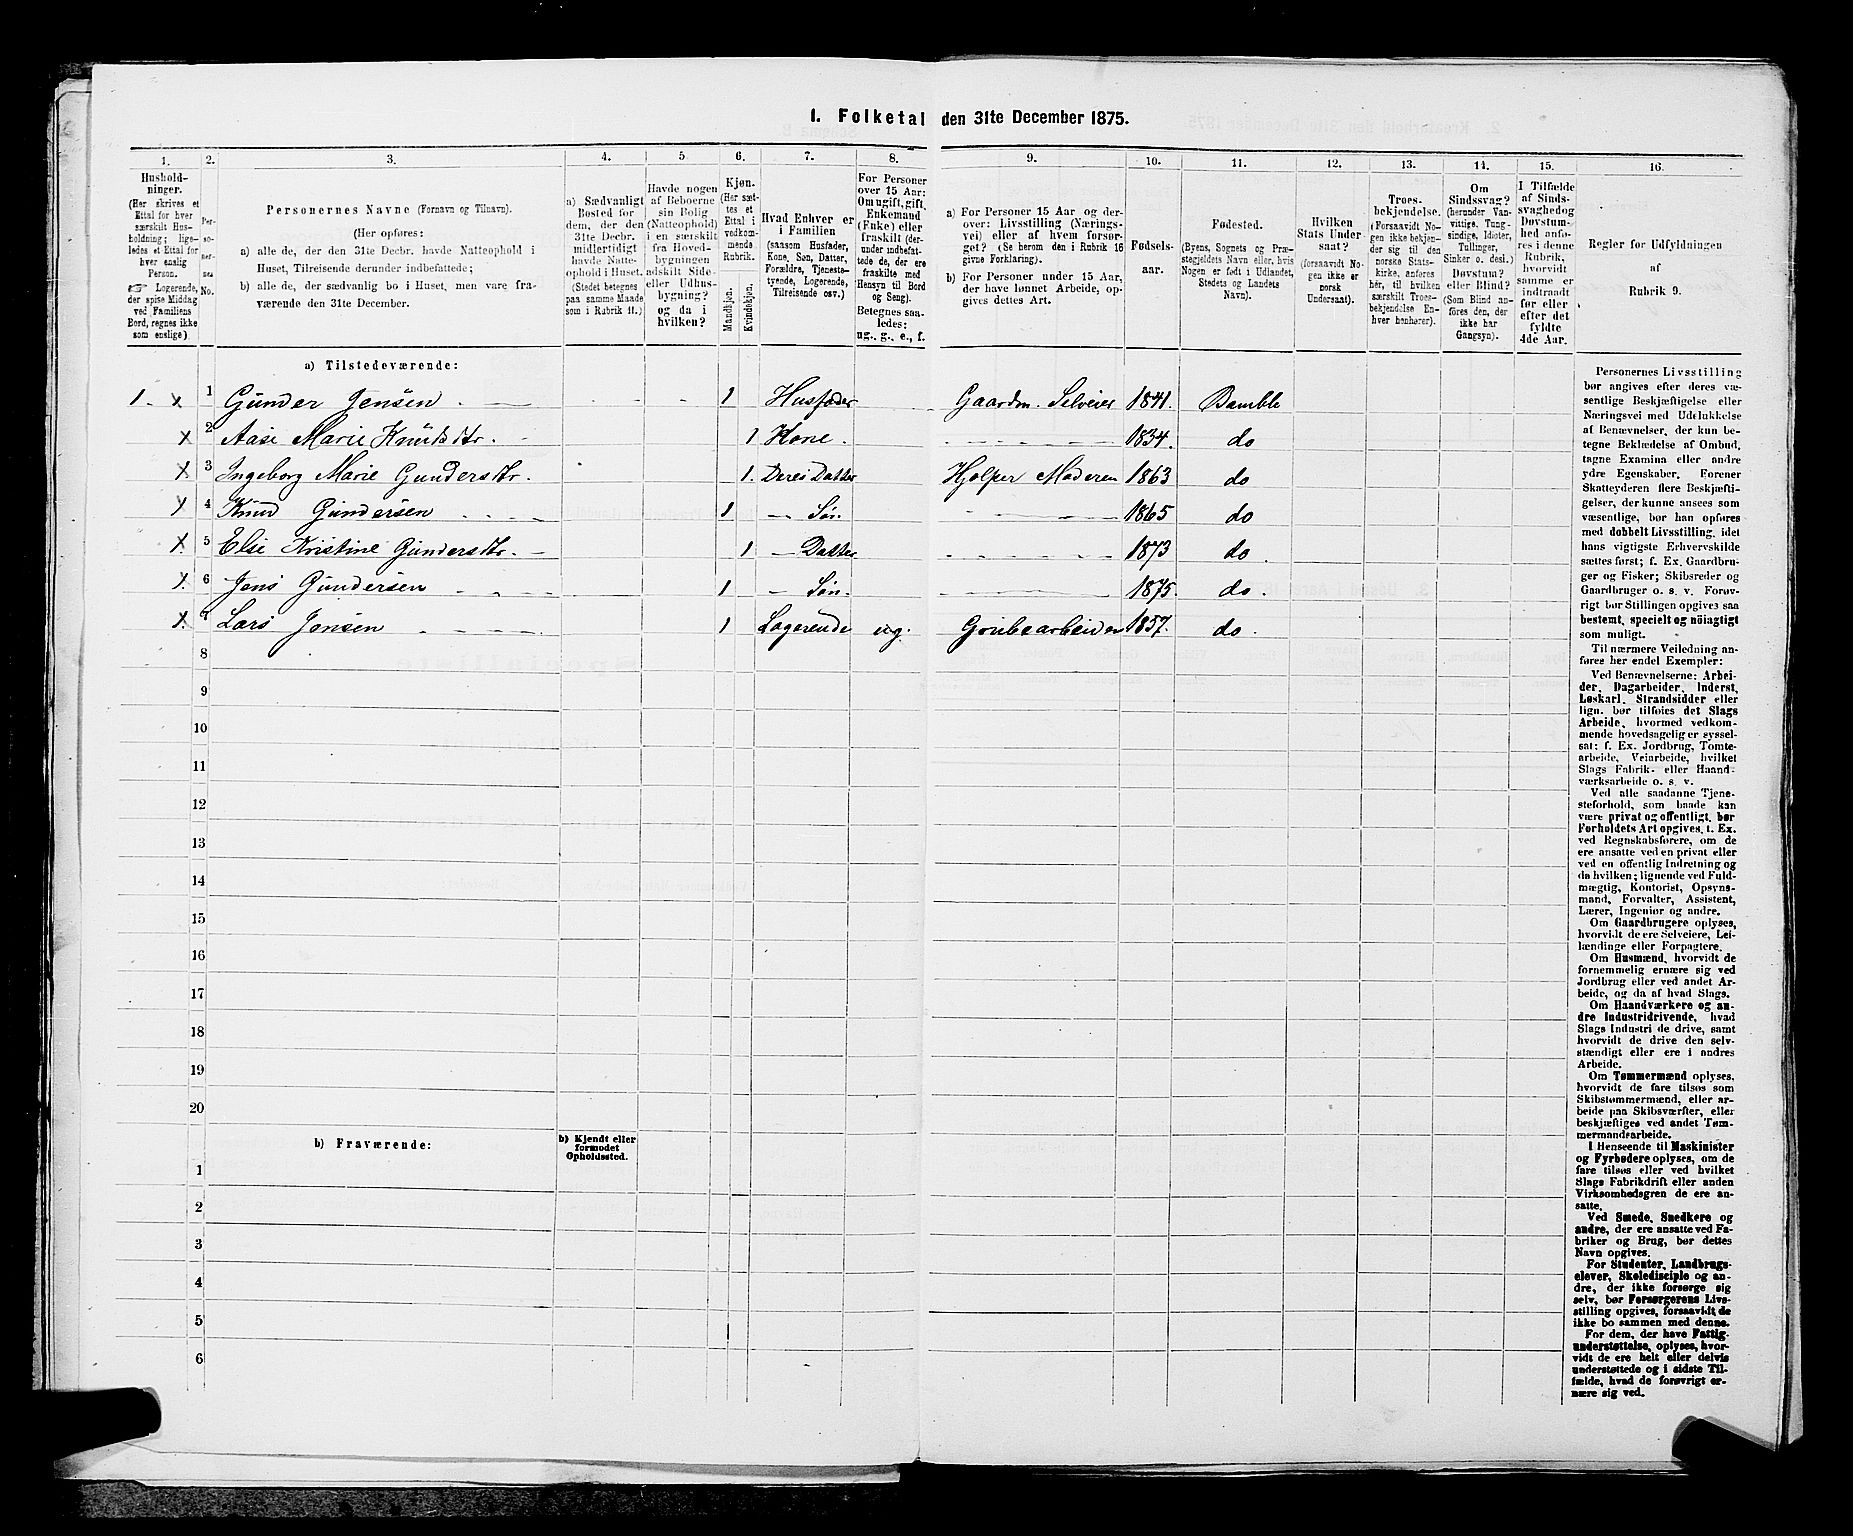 1. Folketal den 31te December 1875.
1. 2. 3. 4. 5. 6. 7. 8. 9. 10. 11. 12. 13. 14. 15. 16.
Hushold-
ninger.
(Her skrives et
Ettal for hver
særskilt Hus-
holdning; lige-
ledes et Ettal for
hver enslig
Person.
☞ Logerende,
der spise Middag
ved Familiens
Bord, regnes ikke
som enslige)
Per-
so-
ner-
nes
No.
Personernes Navne (Fornavn og Tilnavn).
(Her opføres:
a) alle de, der den 31te Decbr. havde Natteophold i
Huset, Tilreisende derunder indbefattede;
b) alle de, der sædvanlig bo i Huset, men vare fra-
værende den 31te December.
a) Sædvanligt
Bosted for
dem, der den
31te Decbr.
midlertidigt
havde Natte-
ophold i Huset.
(Stedet betegnes
paa samme Maade
som i Rubrik 11.)
Havde nogen
af Beboerne
sin Bolig
(Natteophold)
i en særskilt
fra Hoved-
bygningen
adskilt Side-
eller Udhus-
bygning?
og da i
hvilken?
Kjøn.
(Her sæt-
tes et
Ettal i
vedkom-
mende
Rubrik.
Mandkjøn.
Kvindekjøn.
Hvad Enhver er
i Familien
(saasom Husfader,
Kone, Søn, Datter,
Forældre, Tjeneste-
tyende, Logerende,
Tilreisende osv.)
For Personer
over 15 Aar:
Om ugift, gift,
Enkemand
(Enke) eller
fraskilt (der-
under indbefat-
tede de, der ere
fraskilte med
Hensyn til Bord
og Seng).
Betegnes saa-
ledes:
ug., g., e., f.
a) For Personer 15 Aar og der-
over: Livsstilling (Nærings-
vei) eller af hvem forsør-
get? (Se herom den i Rubrik 16
givne Forklaring).
b) For Personer under 15 Aar,
der have lønnet Arbeide, op-
gives dettes Art.
Fødsels-
aar.
Fødested.
(Byens, Sognets og Præ-
stegjeldets Navn eller, hvis
Nogen er født i Udlandet,
Stedets og Landets
Navn).
Hvilken
Stats Under-
saat?
(forsaavidt No-
gen ikke er
norsk
Undersaat).
Troes-
bekjendelse.
(Forsaavidt No-
gen ikke bekjen-
der sig til den
norske Stats-
kirke, anføres
her, til hvilken
særskilt Troes-
bekjendelse En-
hver henhører).
Om
Sindssvag?
(herunder Van-
vittige, Tung-
sindige, Idioter,
Tullinger,
Sinker o. desl.)
Døvstum?
eller Blind?
(Som Blind an-
føres den, der
ikke har
Gangsyn).
I Tilfælde
af Sinds-
svaghed og
Døvstum-
hed anfø-
res i denne
Rubrik,
hvorvidt
samme er
indtraadt
før eller
efter det
fyldte
4de Aar.
Regler for Udfyldningen
af
Rubrik 9.
a) Tilstedeværende:
1. x 1 Gunder Jensen 1 Husfader Gaardm. Selveier 1841. Bamble
x 2 Aase Marie Knudsdtr. 1 Kone. 1834. do
x 3 Ingeborg Marie Gundersdtr. 1. Deres Datter Hjelper Moderen 1863 do
x 4 Knud Gundersen 1 Søn 1865 do
x 5 Else Kristine Gundersdtr. 1 Datter 1873 do.
x. 6 Jens Gundersen 1 Søn. 1875. do.
x. 7 Lars Jensen 1 Logerende ug. Grubearbeider 1857. do.
8
9
10
11
12
13
14
15
16
17
18
19
20
b) Fraværende: b) Kjendt eller
formodet
Opholdssted.
1
2
3
4
5
6
Personernes Livsstilling
bør angives efter deres væ-
sentlige Beskjæftigelse eller
Næringsvei med Udelukkelse
af Benævnelser, der kun be-
tegne Beklædelse af Ombud,
tagne Examina eller andre
ydre Egenskaber. Forener
Skatteyderen flere Beskjæfti-
gelser, der kunne ansees som
væsentlige, bør han opføres
med dobbelt Livsstilling, idet
hans vigtigste Erhvervskilde
sættes først; f. Ex. Gaardbru-
ger og Fisker; Skibsreder og
Gaardbruger o. s. v. Forøv-
rigt bør Stillingen opgives saa
bestemt, specielt og nøiagtigt
som muligt.
Til nærmere Veiledning an-
føres her endel Exempler:
Ved Benævnelserne: Arbei-
der, Dagarbeider, Inderst,
Løskarl, Strandsidder eller
lign. bør tilføies det Slags
Arbeide, hvormed vedkom-
mende hovedsagelig er syssel-
sat; f. Ex. Jordbrug, Tomte-
arbeide, Veiarbeide, hvilket
Slags Fabrik- eller Haand-
værksarbeide o. s. v.
Ved alle saadanne Tjene-
steforhold, som baade kan
være privat og offentligt, bør
Forholdets Art opgives, t. Ex.
ved Regnskabsførere, om de
ere ansatte ved en privat eller
ved en offentlig Indretning og
da hvilken; lignende ved Fuld-
mægtig, Kontorist, Opsyns-
mand, Forvalter, Assistent,
Lærer, Ingeniør og andre.
Om Gaardbrugere oplyses,
hvorvidt de ere Selveiere, Lei-
lændinge eller Forpagtere.
Om Husmænd, hvorvidt de
fornemmelig ernære sig ved
Jordbrug eller ved andet Ar-
beide, og da af hvad Slags.
Om Haandværkere og an-
dre Industridrivende, hvad
Slags Industri de drive, samt
hvorvidt de drive den selv-
stændigt eller ere i andres
Arbeide.
Om Tømmermænd oplyses,
hvorvidt de fare tilsøs som
Skibstømmermænd, eller ar-
beide paa Skibsværfter, eller
beskjæftiges ved andet Tøm-
mermandsarbeide.
I Henseende til Maskinister
og Fyrbødere oplyses, om de
fare tilsøs eller ved hvilket
Slags Fabrikdrift eller anden
Virksomhedsgren de ere an-
satte.
Ved Smede, Snedkere og
andre, der ere ansatte ved Fa-
briker og Brug, bør dettes
Navn opgives.
For Studenter, Landbrugs-
elever, Skoledisciple og an-
dre, der ikke forsørge sig
selv, bør Forsørgerens Livs-
stilling opgives, forsaavidt de
ikke bo sammen med denne.
For dem, der have Fattig-
understøttelse, oplyses, hvor-
vidt de ere helt eller delvis
understøttede og i sidste Til-
fælde, hvad de forøvrigt er-
nære sig ved.